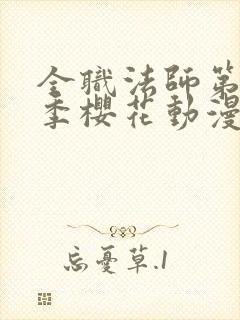 全職法師第
季櫻花動漫
忘憂草.1